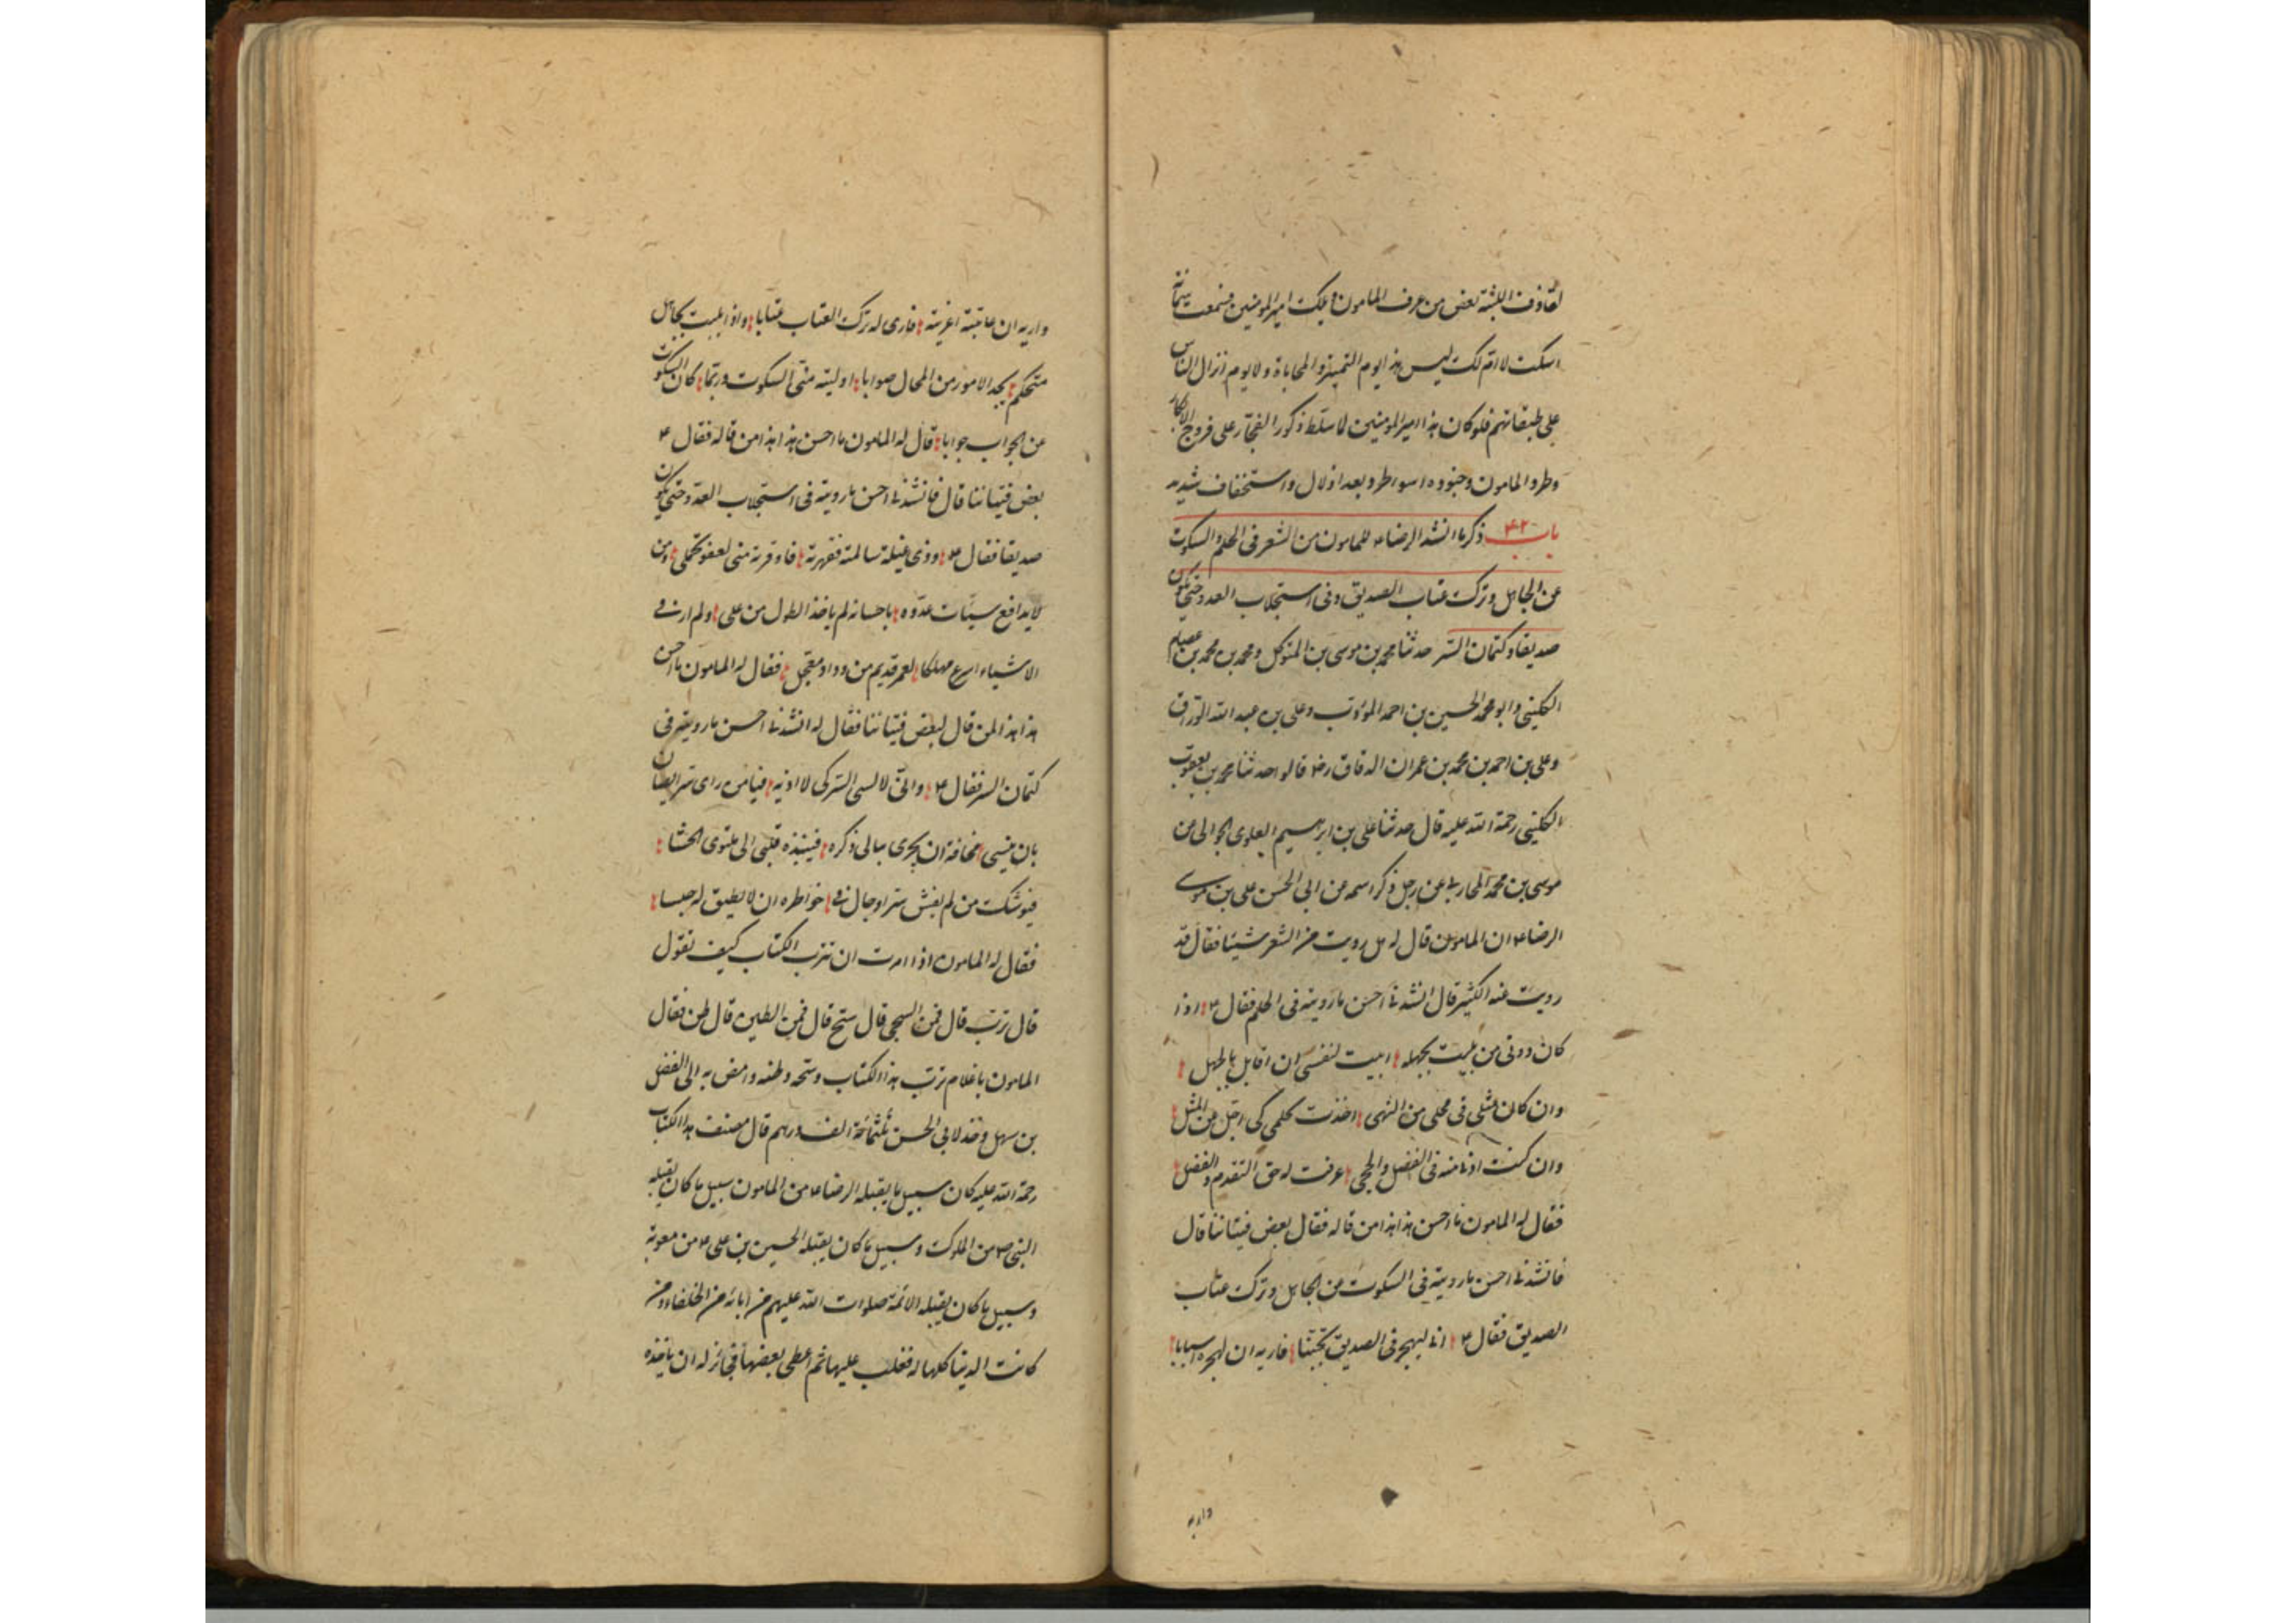 لقاذف اللبنة بعض من عرف المامون ويلك امير المومنين فسمعت سمانة
اسكت لا ام لك ليس هذا يوم التميز والمحاباة ولا يوم انزال الناس
على طبقاتهم فلو كان هذا امير المومنين لما سلط ذكور الفجار على فروج الابكار
وطرد المامون وجنوده اسوا طرد بعد اذلال واستخفاف شديد
باب ۴۲ ذكر ما انشد الرضاء للمامون من الشعر فى الحلم والسكوت
عن الجاهل وترك عتاب الصديق وفى استجلاب العدو حتى يكون
صديقا وكتمان السر حدثنا محمد بن موسى بن المتوكل ومحمد بن محمد بن عصام
الكلينى وابو محمد الحسين بن احمد المؤدب وعلى بن عبد الله الوراق
وعلى بن احمد بن محمد بن عمران الدقاق رضه قالوا حدثنا محمد بن يعقوب
الكلينى رحمة الله عليه قال حدثنا على بن ابرهيم العلوى الجوانى عن
موسى بن محمد المحاربى عن رجل ذكر اسمه عن ابى الحسن على بن موسى
الرضاء ان المامون قال له هل رويت من الشعر شيئا فقال قد
رويت عنه الكثير قال انشدنى احسن ما رويته فى الحلم فقال ع اذا
كان دونى من بليت بجهله ابيت لنفسى ان اقابل بالجهل
وان كان مثلى فى محلى من النهى اخذت بحلمى كى اجل عن المثل
وان كنت ادنى منه فى الفضل والحجى عرفت له حق التقدم والفضل
فقال له المامون ما احسن هذا هذا من قاله فقال بعض فتياننا قال
فانشدنى احسن ما رويته فى السكوت عن الجاهل وترك عتاب
الصديق فقال ع انى ليهجرنى الصديق تجنبا فاريه ان لهجره اسبابا
واريه
واريه ان عاتبته اغريته فارى له ترك العتاب عتابا واذا بليت بجاهل
متحكم يجد الامور من المحال صوابا اوليته منى السكوت وربما كان السكوت
عن الجواب جوابا قال له المامون ما احسن هذا هذا من قاله فقال ع
بعض فتياننا قال فانشدنى احسن ما رويته فى استجلاب العدو حتى يكون
صديقا فقال ع وذى غيلة سالمته فقهرته فاوقرته منى لعفو تحملى ومن
لا يدافع سيئات عدوه باحسانه لم ياخذ الطول من على ولم ار فى
الاشياء اسرع مهلكا لغمر قديم من وداد معجل فقال له المامون ما احسن
هذا هذا لمن قال لبعض فتياننا فقال له انشدنى احسن ما رويته فى
كتمان السر فقال ع وانى لانسى السر كى لا اذيه فيا من راى سرا يصان
بان ينسى مخافة ان يجرى ببالى ذكره فينبذه قلبى الى ملتوى الحشا
فيوشك من لم يفش سرا وجال فى خواطره ان لا يطيق له حبسا
فقال له المامون اذا امرت ان تترب الكتاب كيف تقول
قال ترب قال فمن السحى قال سح قال فمن الطين قال طن فقال
المامون يا غلام ترب هذا الكتاب وسحه وطنه وامض به الى الفضل
بن سهل وخذ لابى الحسن ثلثمائة الف درهم قال مصنف هذا الكتاب
رحمة الله عليه كان سبيل ما يقبله الرضاء من المامون سبيل ما كان يقبله
النبى ص من الملوك وسبيل ما كان يقبله الحسين بن على ع من معوية
وسبيل ما كان يقبله الائمة صلوات الله عليهم من ابائه من الخلفاء ومن
كانت الدنيا كلها له فغلب عليها ثم اعطى بعضها فجائز له ان ياخذه